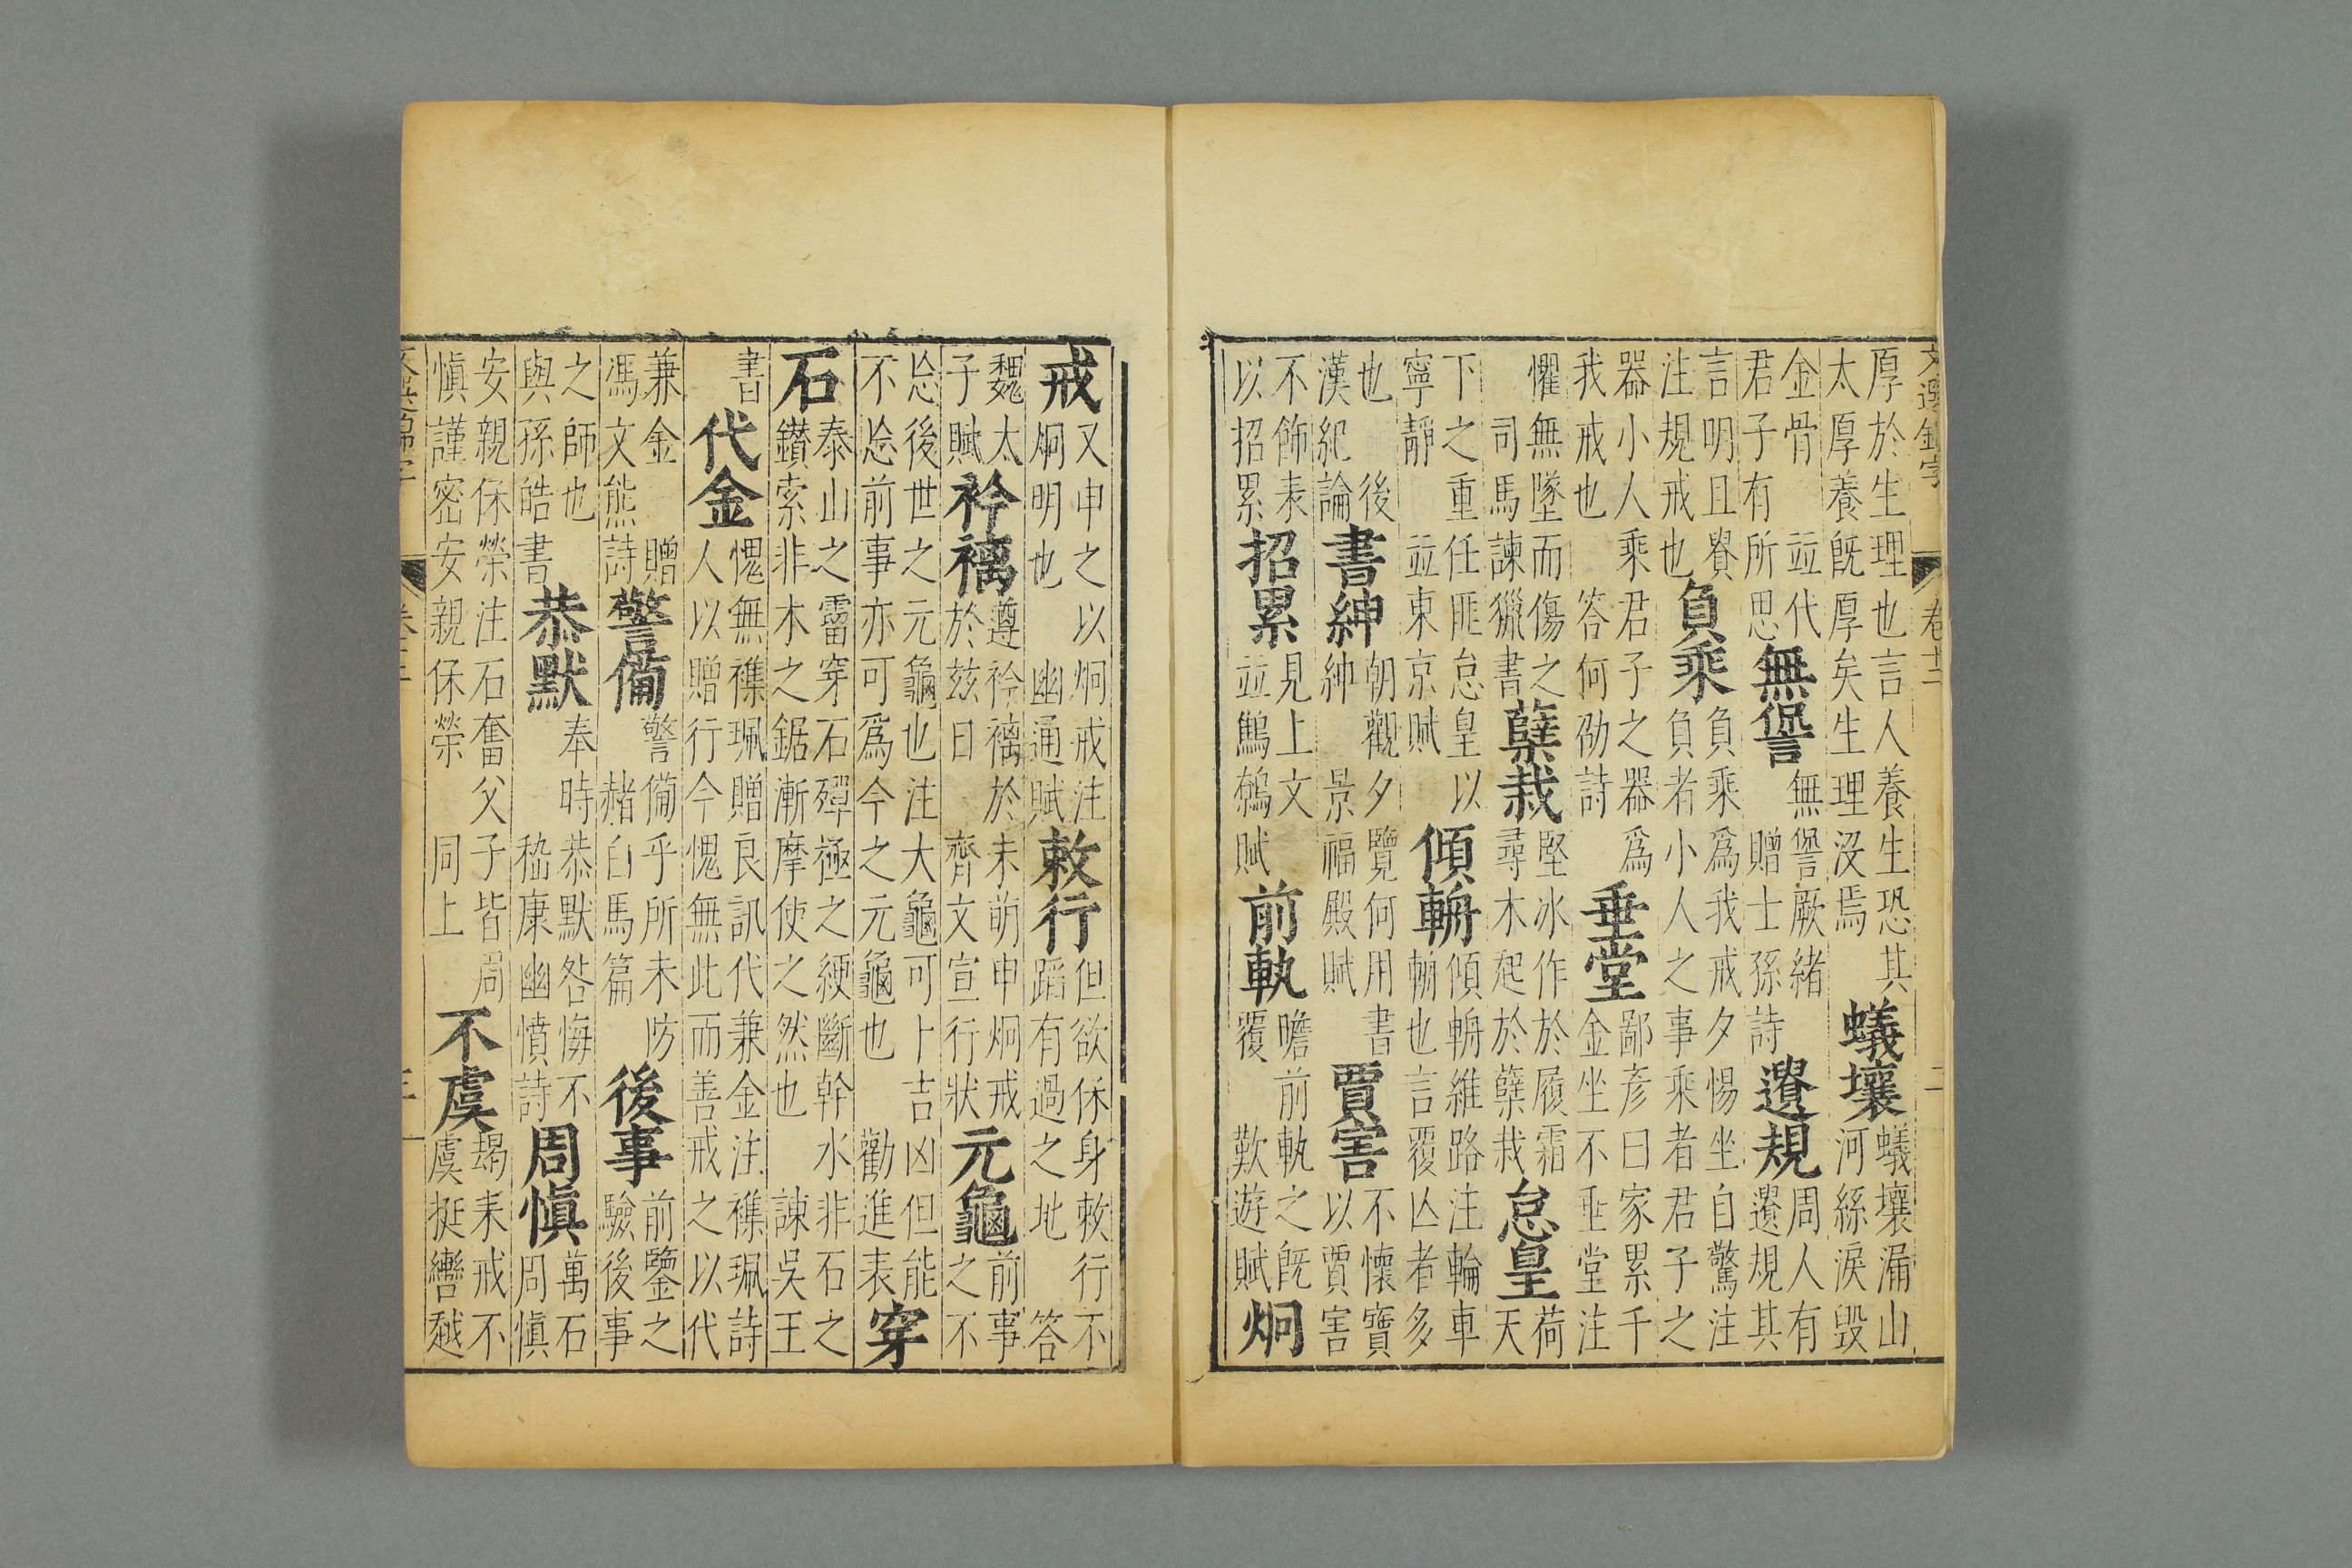 卷十二 二
厚於生理也言人養生恐其太厚養旣厚矣生理沒焉蟻壤蟻壤漏山河絲淚毀
金骨 並代君子有所思無諐無諐厥緒贈士孫詩遺規周人有遺規其
言明且賚注規戒也負乘負乘爲我戒夕惕坐自驚注負者小人之事乘者君子之
器小人乘君子之器爲我戒也 答何劭詩垂堂鄙彥曰家累千金坐不垂堂注
懼無墜而傷之司馬諫獵書孽栽堅冰作於履霜尋木起於孽栽怠皇荷天
下之重任匪怠皇以寧靜 並東京賦傾輈傾輈維路注輪車輈也言覆亾者多
也 後漢紀論書紳朝觀夕覽何用書紳 景福殿賦賈害不懷寶以賈害
不飾表以招累招累見上文並鷦鷯賦前軌瞻前軌之旣覆 歎遊賦炯
戒又申之以炯戒注炯明也 幽通賦敕行但欲保身敕行不蹈有過之地 答
魏太子賦衿褵遵衿褵於未萌申炯戒於茲日 齊文宣行狀元龜前事之不
忘後世之元龜也注大龜可卜吉凶但能不忘前事亦可爲今之元龜也 勸進表穿
石泰山之霤穿石殫極之綆斷幹水非石之鑚索非木之鋸漸摩使之然也 諫吳王
書代金愧無雜珮贈良訊代兼金注雜珮詩人以贈行今愧無此而善戒之以代
兼金 贈馮文熊詩警備警備乎所未防赭白馬篇後事前鑒之驗後事
之師也與孫皓書恭默奉時恭默咎悔不 嵇康幽憤詩周愼萬石周愼
安親保榮注石奮父子皆周愼謹密安親保榮 同上不虞朅来戒不虞挺轡越